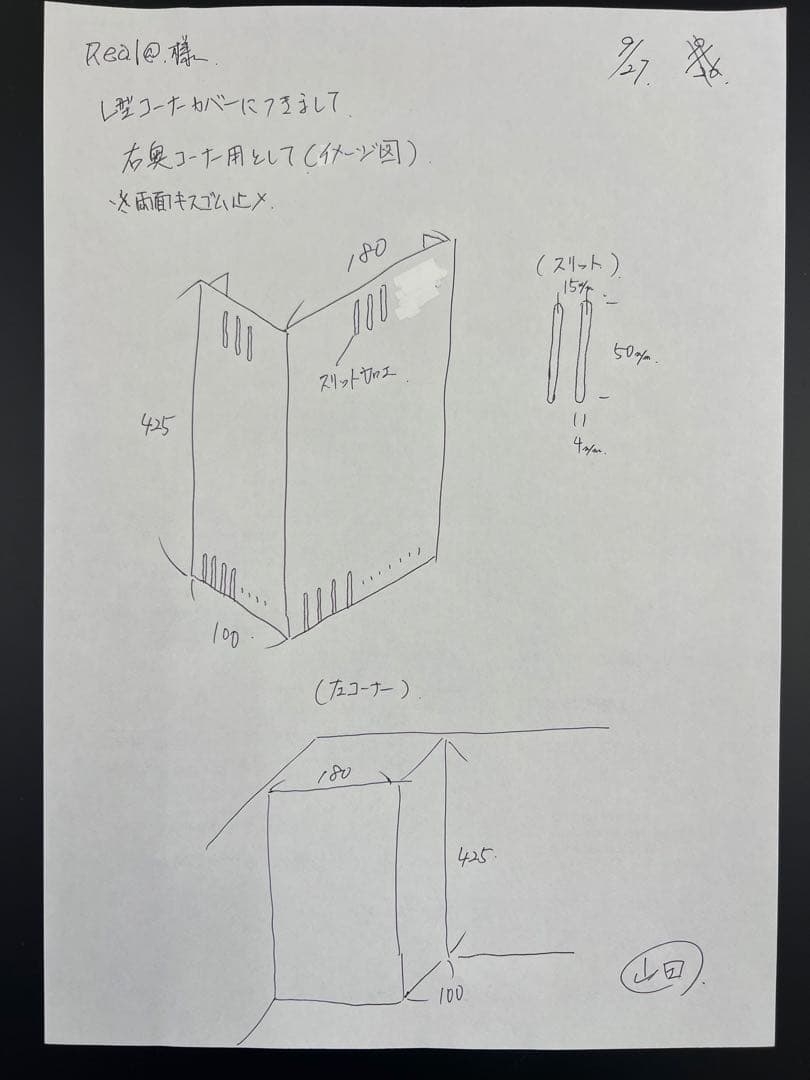 Real@.様
9/27.
L型コーナーカバーにつきまして
右奥コーナー用として(イメージ図).
※両面キスゴム止メ.
180
(スリット)
15m/m
50m/m
スリット加工
425
4m/m.
100.
(左コーナー).
180
425.
100
山田